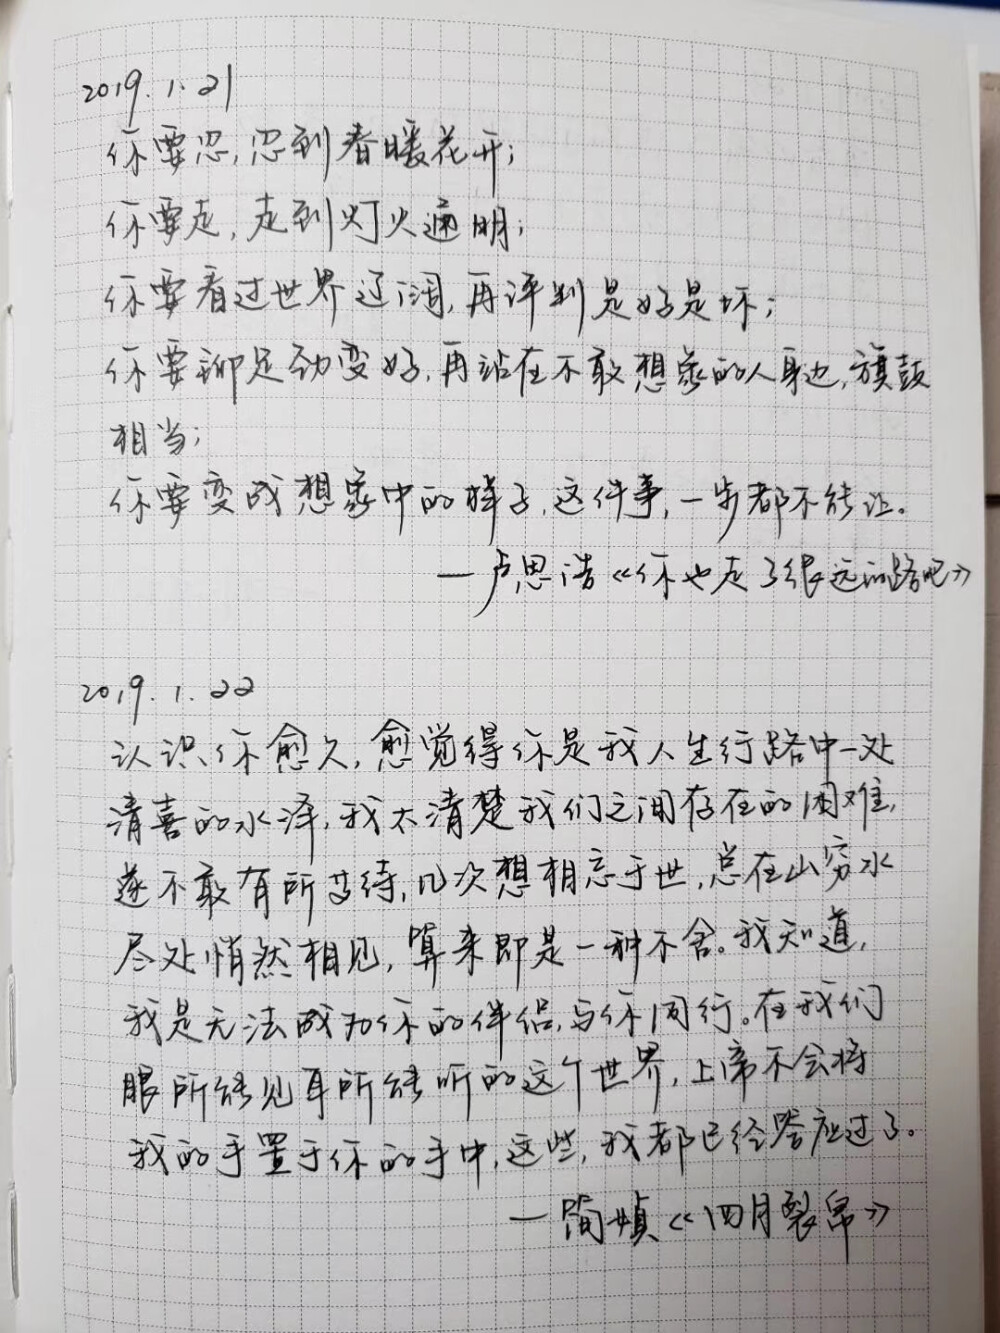 2019.1.21
你要忍,忍到春暖花开;
你要走,走到灯火通明;
你要看过世界辽阔,再评判是好是坏;
你要铆足劲变好,再站在不敢想象的人身边,旗鼓
相当;
你要变成想象中的样子,这件事,一步都不能让。
—卢思浩《你也走了很远的路吧》
2019.1.22
认识你愈久,愈觉得你是我人生行路中一处
清喜的水泽,我太清楚我们之间存在的困难,
遂不敢有所等待,几次想相忘于世,总在山穷水
尽处悄然相见,算来即是一种不舍。我知道,
我是无法成为你的伴侣,与你同行。在我们
眼所能见耳所能听的这个世界,上帝不会将
我的手置于你的手中,这些,我都已经答应过了。
—简媜《四月裂帛》